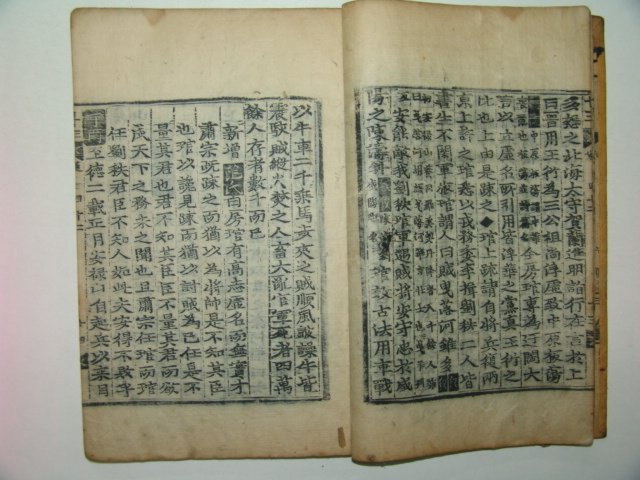 多歸之北海太守賀蘭進明詣行在言於上
曰晉用王衍為三公祖尚浮虛致中原板蕩
今房琯專為迂闊大
言以立虛名所引用皆浮華之黨真王衍之
比也上由是疎之◆琯上疏請自將兵復兩
京上許之琯悉以戎務委李揖劉秩二人皆
書生不閑軍旅琯謂人曰賊曳落河雖多
安能敵我劉秩琯軍遇賊將安守忠於咸
陽之陳濤斜琯效古法用車戰
以牛車二千乘馬步夾之賊順風鼓譟牛皆
震駭賊縱火焚之人畜大亂官軍死者四萬
餘人存者數千而已
新增 范氏曰房琯有高志虛名而無實才
肅宗既疎之而猶以為將帥是不知其臣
也琯以讒見疎而猶以討賊為己任是不
量其君也君不知其臣臣不量其君而欲
成天下之務未之聞也且肅宗任琯而琯
任劉秩君臣不知人如此大安得不敗乎
丁酉 至德二載正月安祿山自起兵以來目